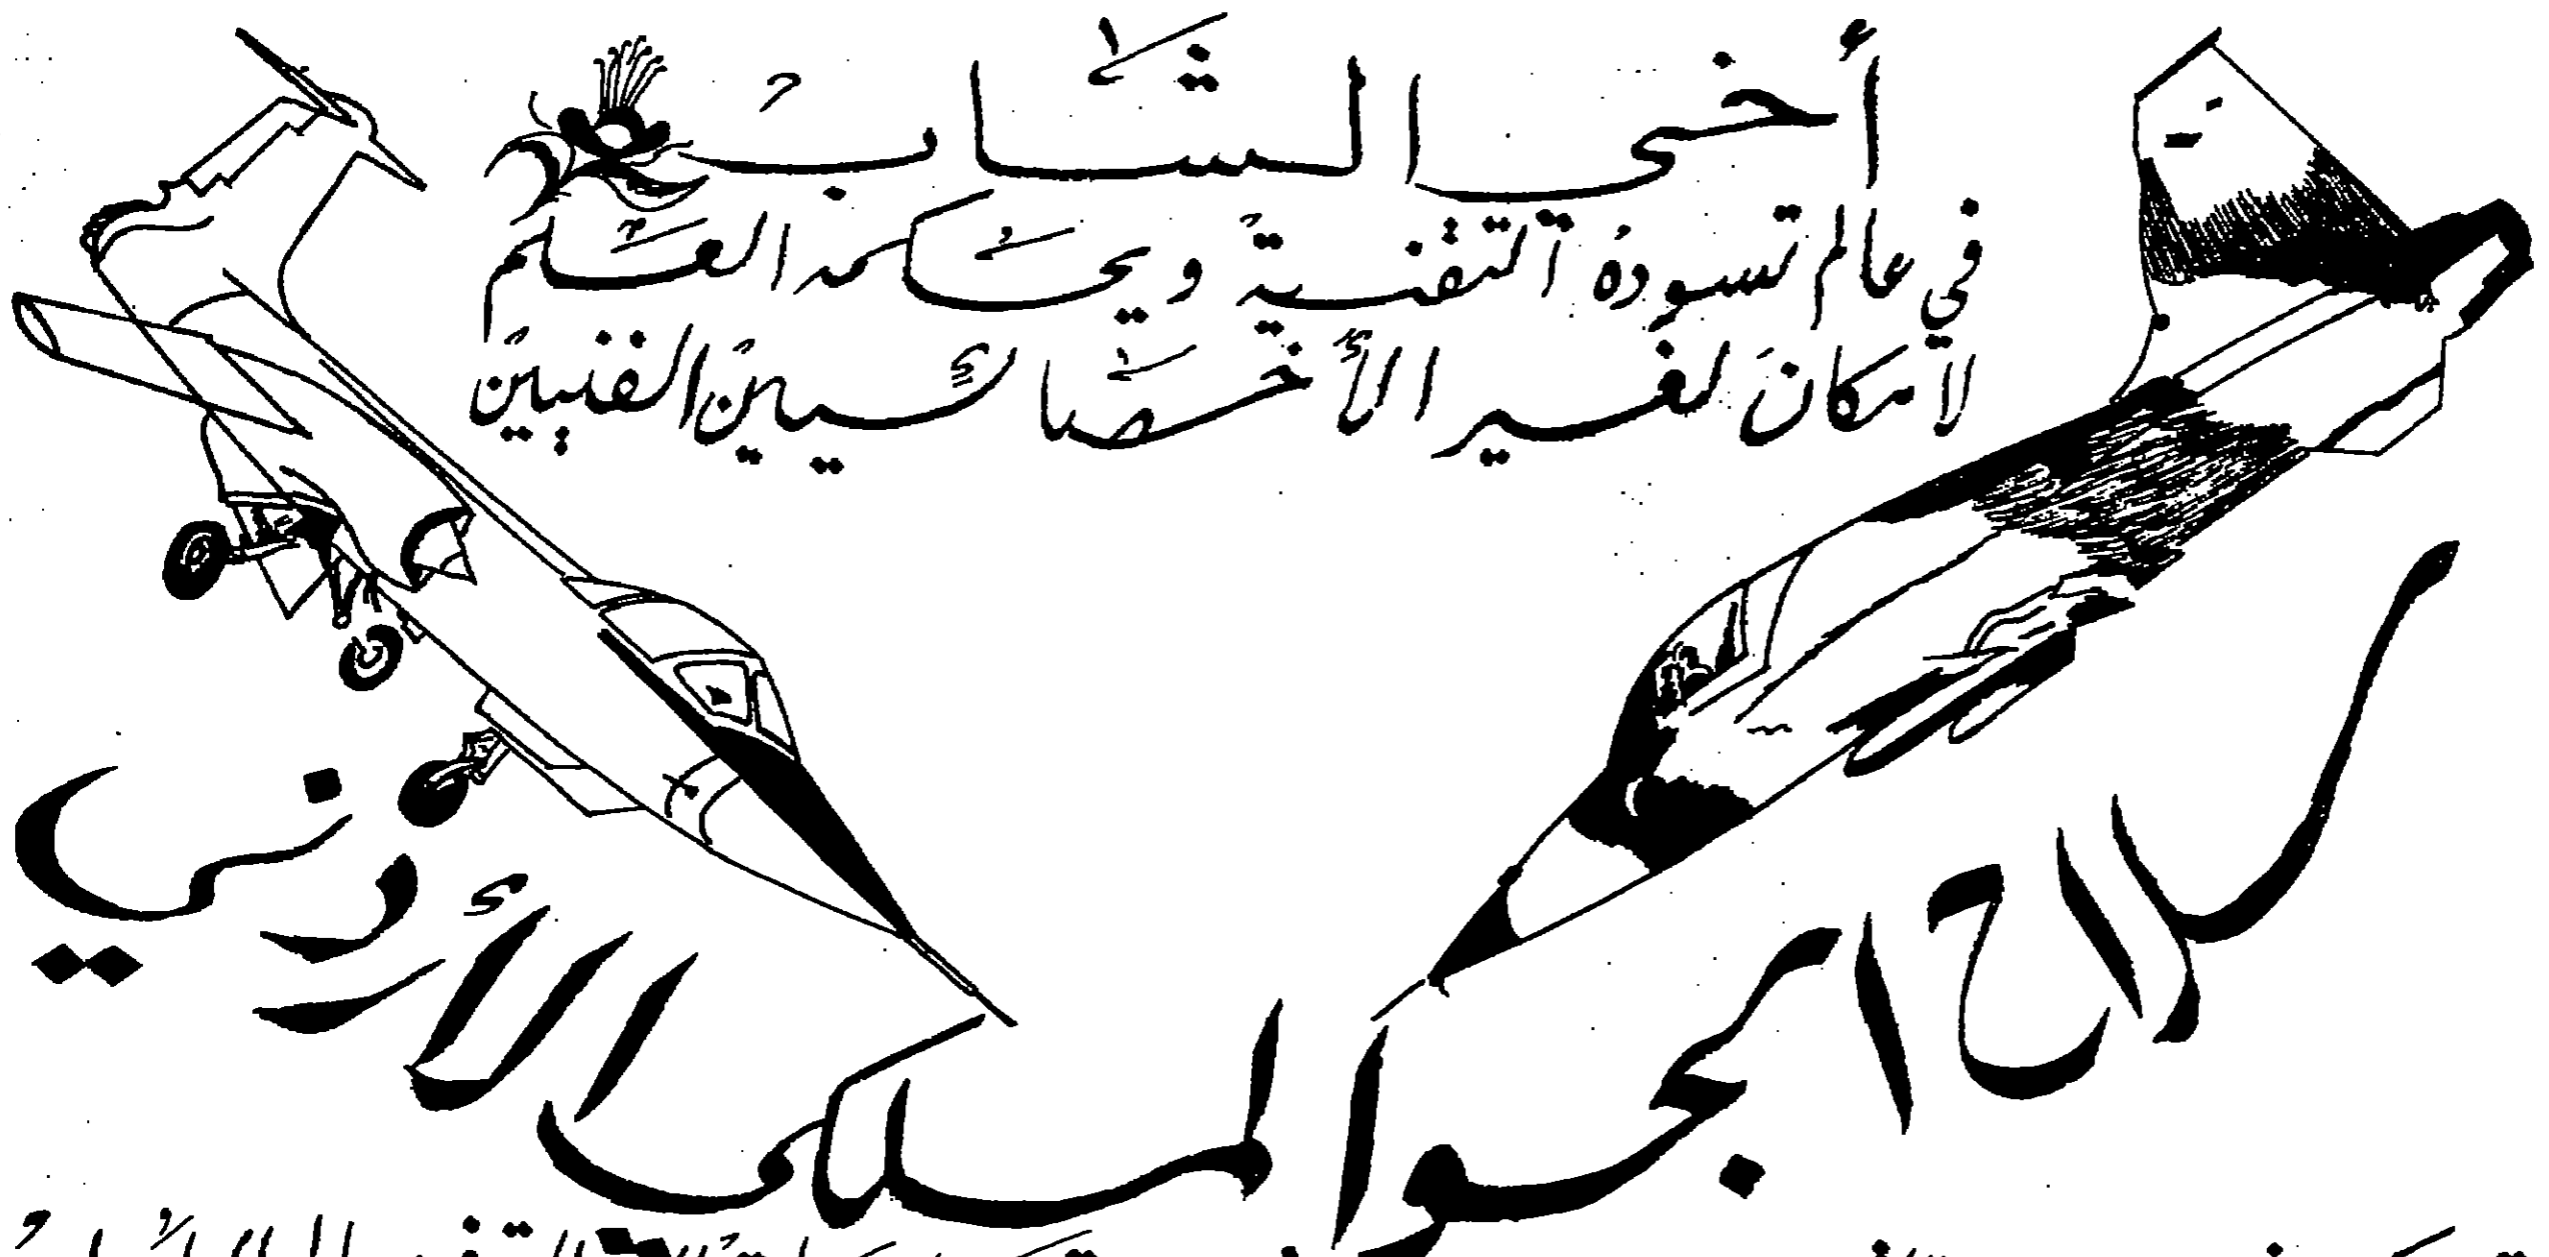 أخي الشاب
في عالم تسوده التقنية ويحكمه العلم
لا مكان لغير الأخصائيين الفنيين
سلاح الجو الملكي الأردني